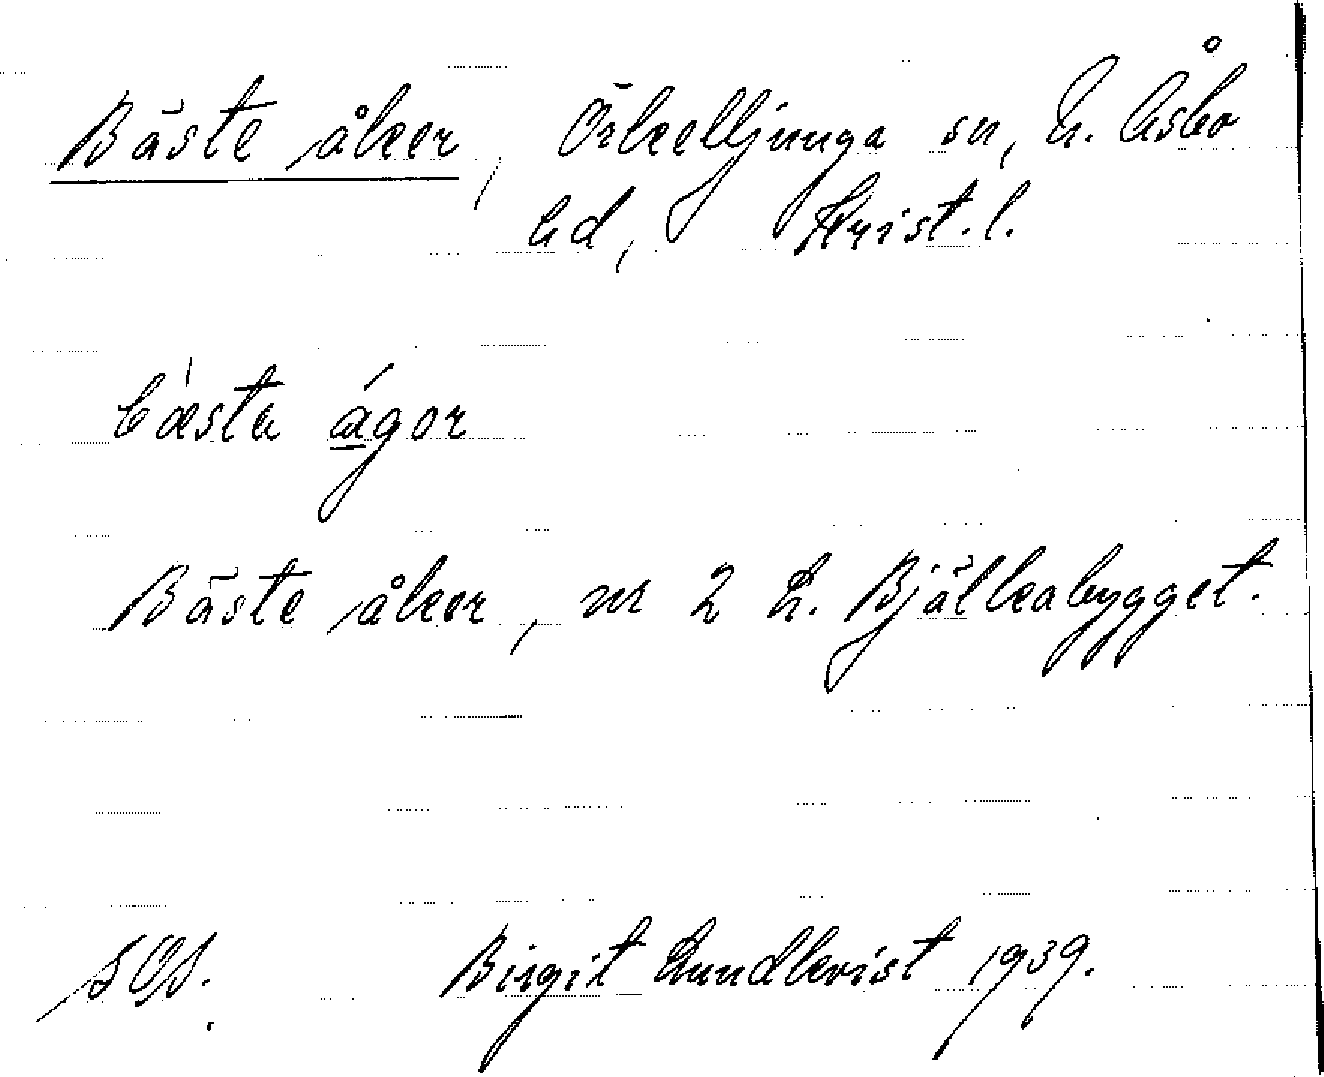 Bäste åker, Örkelljunga sn, N. Åsbo
hd, Krist. l.
bæ̍sta águr
Bäste åker, nr 2 L. Bjälkabygget.
SOS. Birgit Lundkvist 1939.